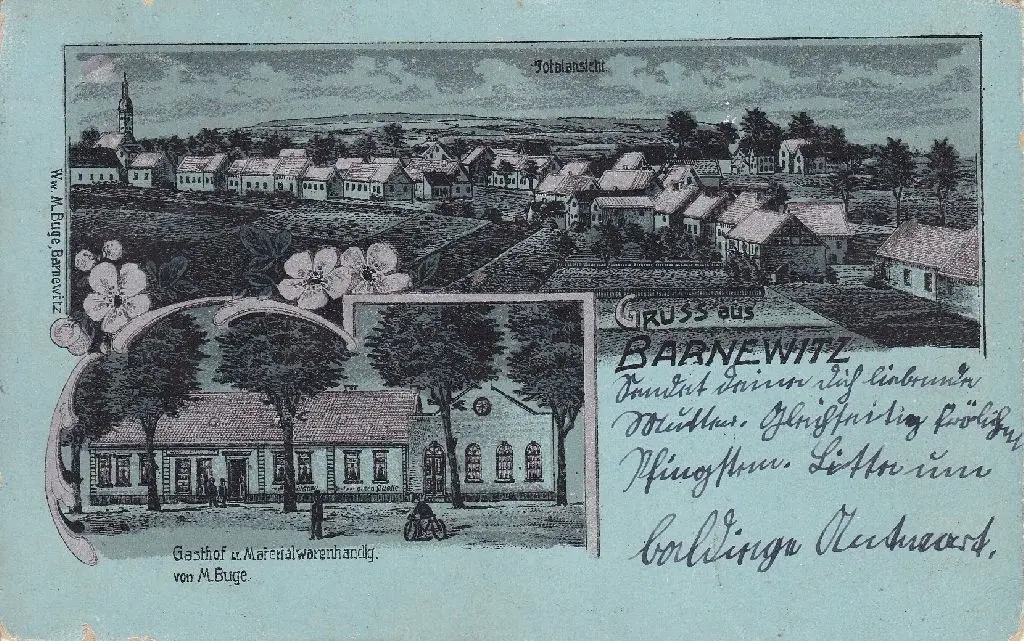 Totalansicht
Ww. M. Buge, Barnewitz
GRUSS aus
BARNEWITZ
Sendet deine dich liebende
Mutter. Gleichzeitig fröhliche
Pfingsten. Bitte um
baldige Antwort.
Gasthof u. Materialwarenhandlg.
von M. Buge.